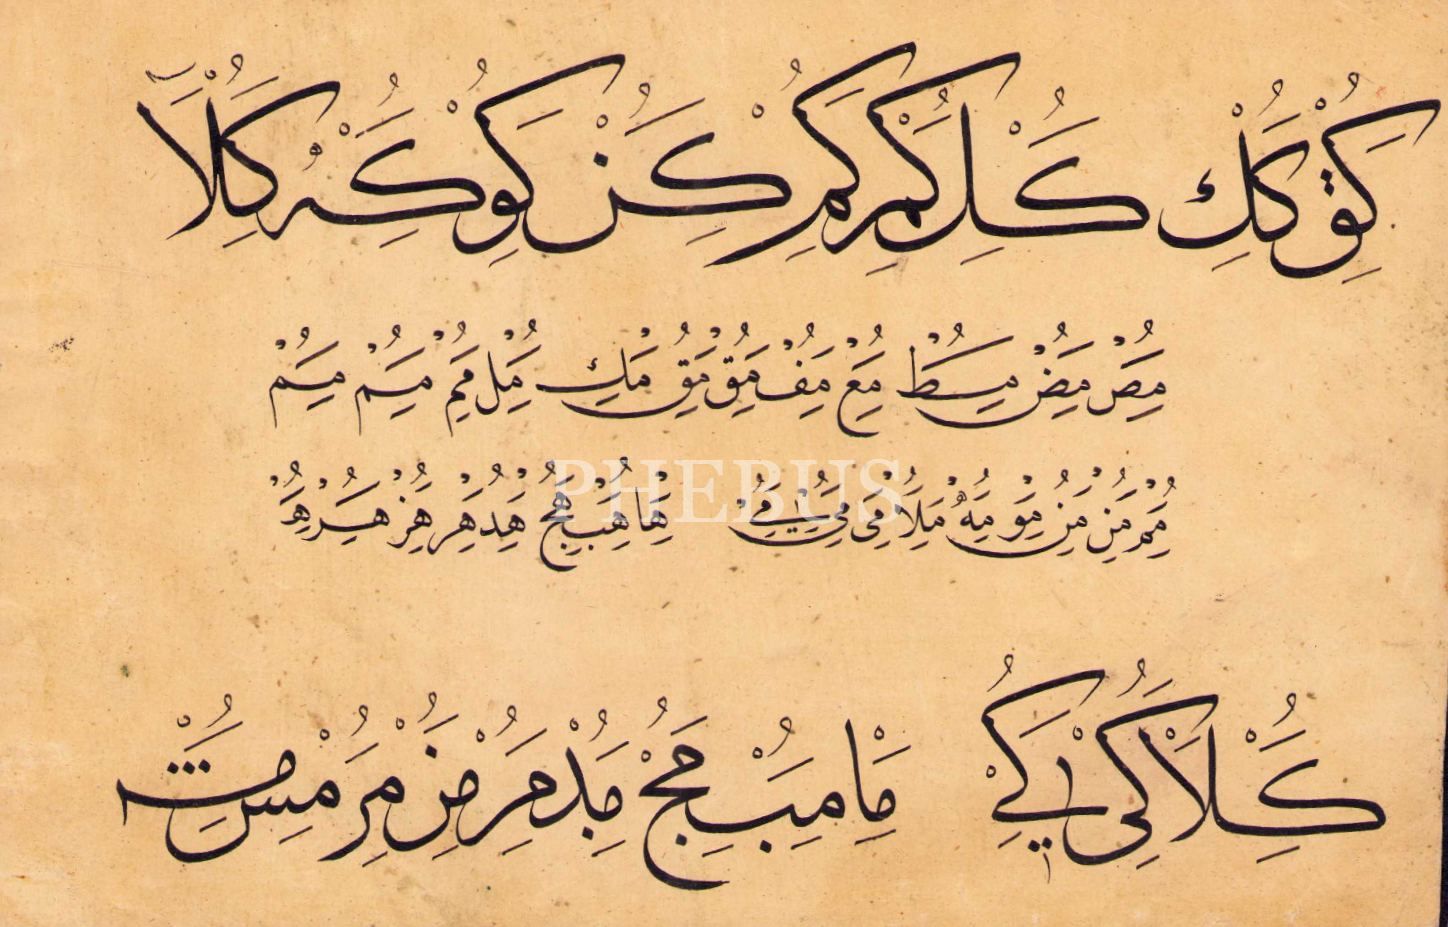 كق كك كل كم كم كن كو كه كلا
مص مض مط مع مف مق مق مك مل مم مم مم
مم من من مو مه ملا مى مى مے ها هب هج هد هر هز هس هر
PHEBUS
كلا كى كے ما مب مج مد مر مز مر مس مش